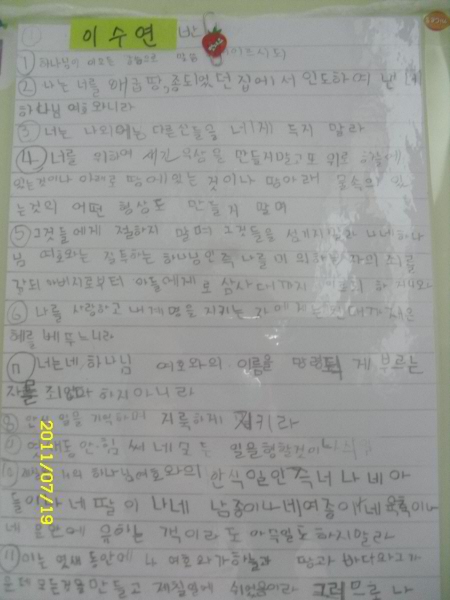 이수연 반
① 하나님이 이 모든 말씀으로 말씀
② 나는 너를 애급 땅, 종 되었던 집에서 인도하여 낸 네
하나님 여호와니라
③ 너는 나 외에는 다른 신들을 네게 두지 말라
④ 너를 위하여 새긴 우상을 만들지 말고 또 위로 하늘에
있는 것이나 아래로 땅에 있는 것이나 땅 아래 물속에 있
는 것의 어떤 형상도 만들지 말며
⑤ 그것들에게 절하지 말며 그것들을 섬기지 말라 나 네 하나
님 여호와는 질투하는 하나님인즉 나를 미워하는 자의 죄를
갚되 아버지로부터 아들에게로 삼사 대까지
⑥ 나를 사랑하고 내 계명을 지키는 자에게는 천 대까지 은
혜를 베푸느니라
너는 네 하나님 여호와의 이름을 망령되게 부르는
자를 죄 없다 하지 아니
안식일을 기억하여 거룩하게 지키라
엿새 동안 힘써 네 모든 일을 행할 것이나
하나님 여호와의 안식일인즉 너나 네 아
들이나 네 딸이나 네 남종이나 네 여종이나 네
네 문안에 유하는 객이라도 아무 일도 하지 말라
⑪ 이는 엿새 동안에 나 여호와가 하늘과 땅과 바다와 그 가
운데 모든 것을 만들고 제칠일에 쉬었음이라 그러므로 나
2011/07/19